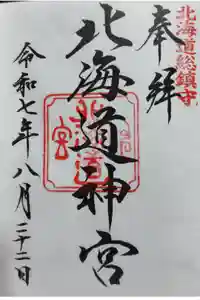 北海道総鎮守
奉拝
北海道神宮
令和七年八月二十二日